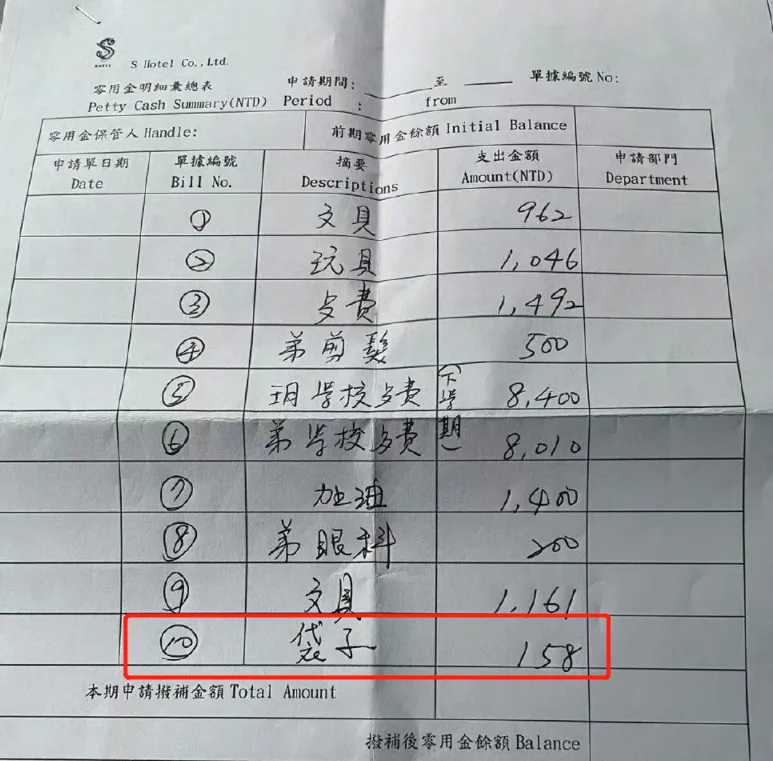 S Hotel Co., Ltd.
零用金明細彙總表 申請期間: ____ 至 ____ 單據編號 No:
Petty Cash Summary(NTD) Period : from
零用金保管人 Handle: 前期零用金餘額 Initial Balance
申請單日期 單據編號 摘要 支出金額 申請部門
Date Bill No. Descriptions Amount(NTD) Department
① 文具 962
② 玩具 1,046
③ 歺費 1,492
④ 弟剪髮 500
⑤ 玥学校歺費 (下学期) 8,400
⑥ 弟学校歺費 8,010
⑦ 加油 1,400
⑧ 弟眼科 200
⑨ 文具 1,161
⑩ 袋子 158
本期申請撥補金額 Total Amount
撥補後零用金餘額 Balance